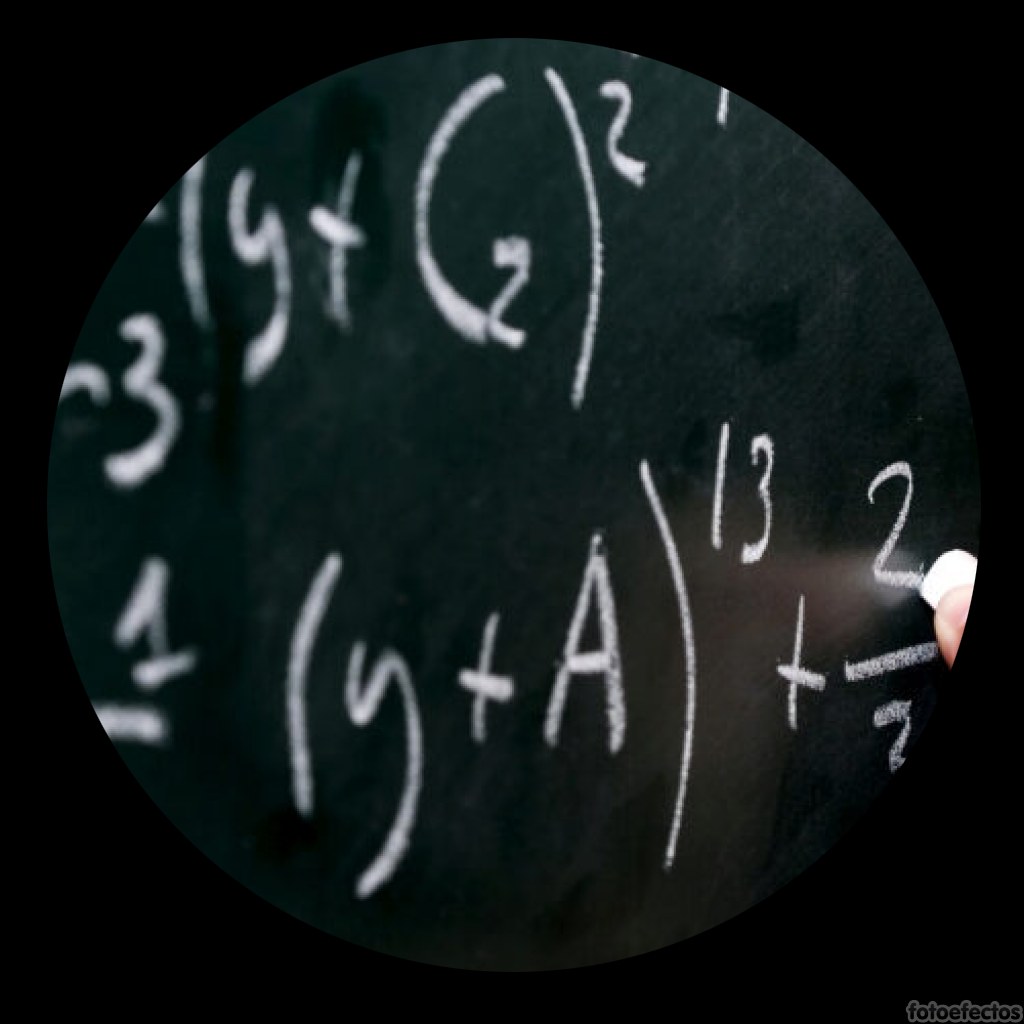 (y+ ( 2 )²
3
1 (y+A)¹³ + 2
2
fotoefectos